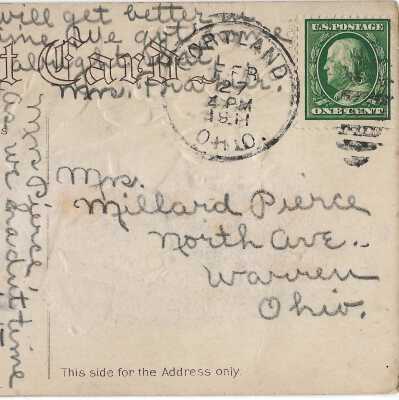 will get better in a
time. We got
all right
Mrs. Frazier.
Mrs Pierce,
as we hadn't time
CORTLAND
FEB
27
4 PM
1911
OHIO
U.S. POSTAGE
ONE CENT
Mrs.
Millard Pierce
North Ave.
Warren
Ohio.
This side for the Address only.